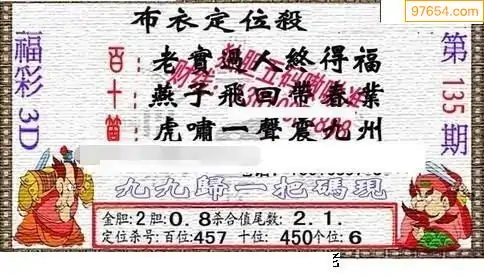 97654.com
布衣定位殺
福彩3D
第135期
百：老實過人終得福
十：燕子飛回帶春業
箇：虎嘯一聲震九州
九九歸一把碼現
金胆:2胆:0.8杀合值尾数: 2.1.
定位杀号:百位:457 十位: 450个位:6